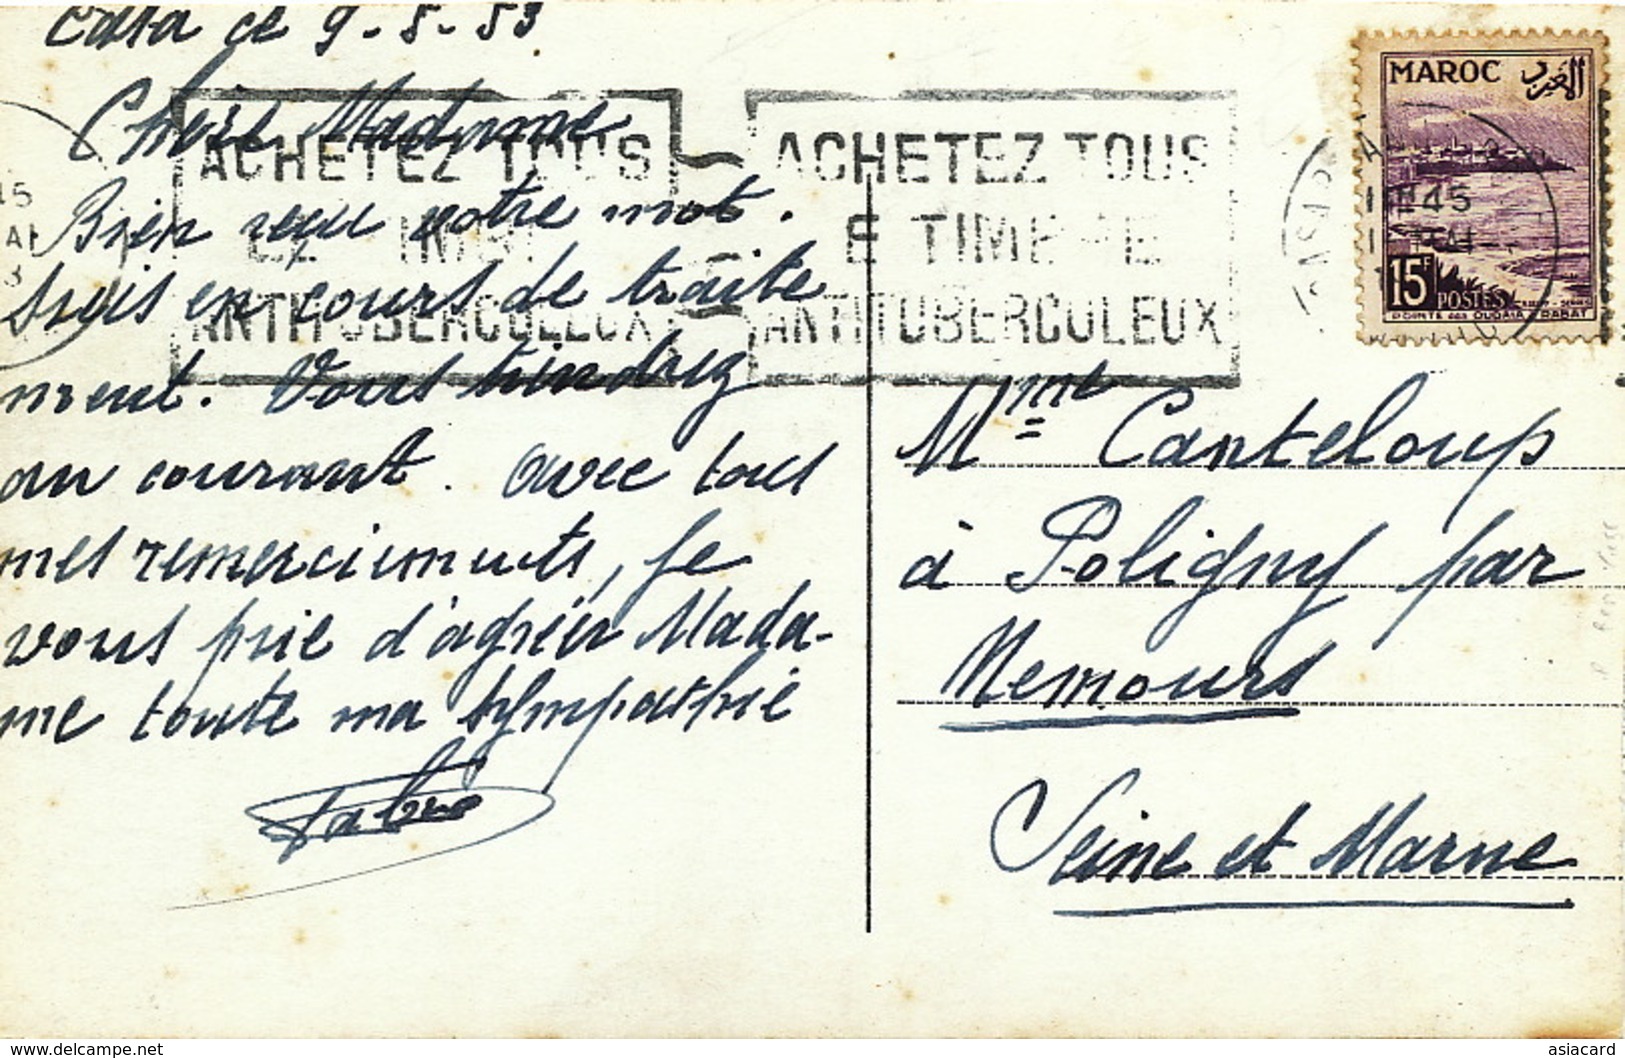 Casa ce 9-5-53
Chère Madame
Bien reçu votre mot.
Suis en cours de traite
ment. Vous tiendrez
au courant. avec tous
mes remerciements, je
vous prie d'agréer Mada-
me toute ma sympathie
ACHETEZ TOUS
LE TIMBRE
ANTITUBERCULEUX
ACHETEZ TOUS
E TIMBRE
ANTITUBERCULEUX
MAROC المغرب
45
MAI
15F POSTES
POINTE des OUDAIA - RABAT
Mme Canteloup
à Poligny par
Nemours
Seine et Marne
www.delcampe.net
asiacard